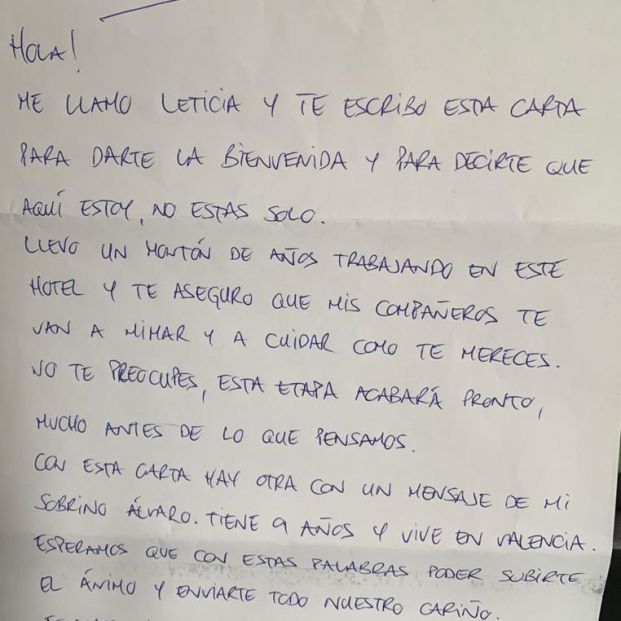 HOLA!
ME LLAMO LETICIA Y TE ESCRIBO ESTA CARTA
PARA DARTE LA BIENVENIDA Y PARA DECIRTE QUE
AQUÍ ESTOY, NO ESTAS SOLO.
LLEVO UN MONTÓN DE AÑOS TRABAJANDO EN ESTE
HOTEL Y TE ASEGURO QUE MIS COMPAÑEROS TE
VAN A MIMAR Y A CUIDAR COMO TE MERECES.
NO TE PREOCUPES, ESTA ETAPA ACABARÁ PRONTO,
MUCHO ANTES DE LO QUE PENSAMOS.
CON ESTA CARTA HAY OTRA CON UN MENSAJE DE MI
SOBRINO ÁLVARO. TIENE 9 AÑOS Y VIVE EN VALENCIA.
ESPERAMOS QUE CON ESTAS PALABRAS PODER SUBIRTE
EL ÁNIMO Y ENVIARTE TODO NUESTRO CARIÑO.